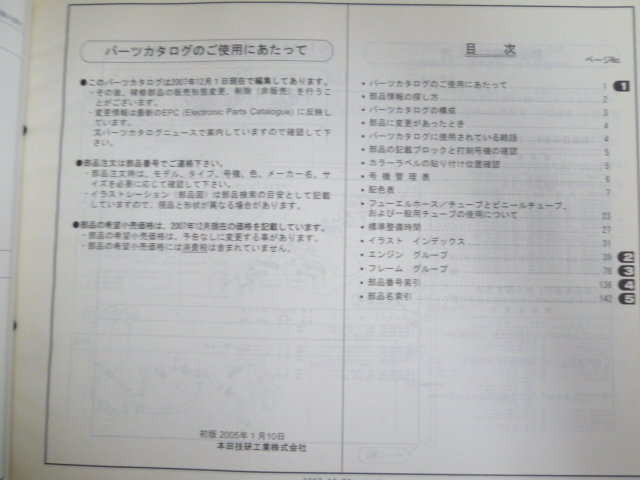 パーツカタログのご使用にあたって
●このパーツカタログは2007年12月1日現在で編集してあります。
・その後、補修部品の販売形態変更、削除（非販売）を行うこ
とがございます。
・変更情報は最新のEPC (Electronic Parts Catalogue) に反映し
ています。
又パーツカタログニュースで案内していますので確認して下
さい。
●部品注文は部品番号でご連絡下さい。
・部品注文時は、モデル、タイプ、号機、色、メーカー名、サ
イズを必要に応じて確認して下さい。
・イラストレーション（部品図）は部品検索の目安として記載
していますので、現品と形状が異なる場合があります。
●部品の希望小売価格は、2007年12月現在の価格を記載しています。
・部品の希望小売価格は、予告なしに変更する事があります。
・部品の希望小売価格には消費税は含まれていません。
初版 2005年1月10日
本田技研工業株式会社
目 次
ページNo.
• パーツカタログのご使用にあたって 1 1
• 部品情報の探し方 2
• パーツカタログの構成 3
• 部品に変更があったとき 4
• パーツカタログに使用されている略語 4
• 部品の記載ブロックと打刻号機の確認 5
• カラーラベルの貼り付け位置確認 5
• 号 機 管 理 表 6
• 配色表 7
• フューエルホース／チューブとビニールチューブ、
および一般用チューブの使用について 23
• 標準整備時間 27
• イラスト インデックス 31
• エンジン グループ 39 2
• フレーム グループ 78 3
• 部品番号索引 136 4
• 部品名索引 142 5